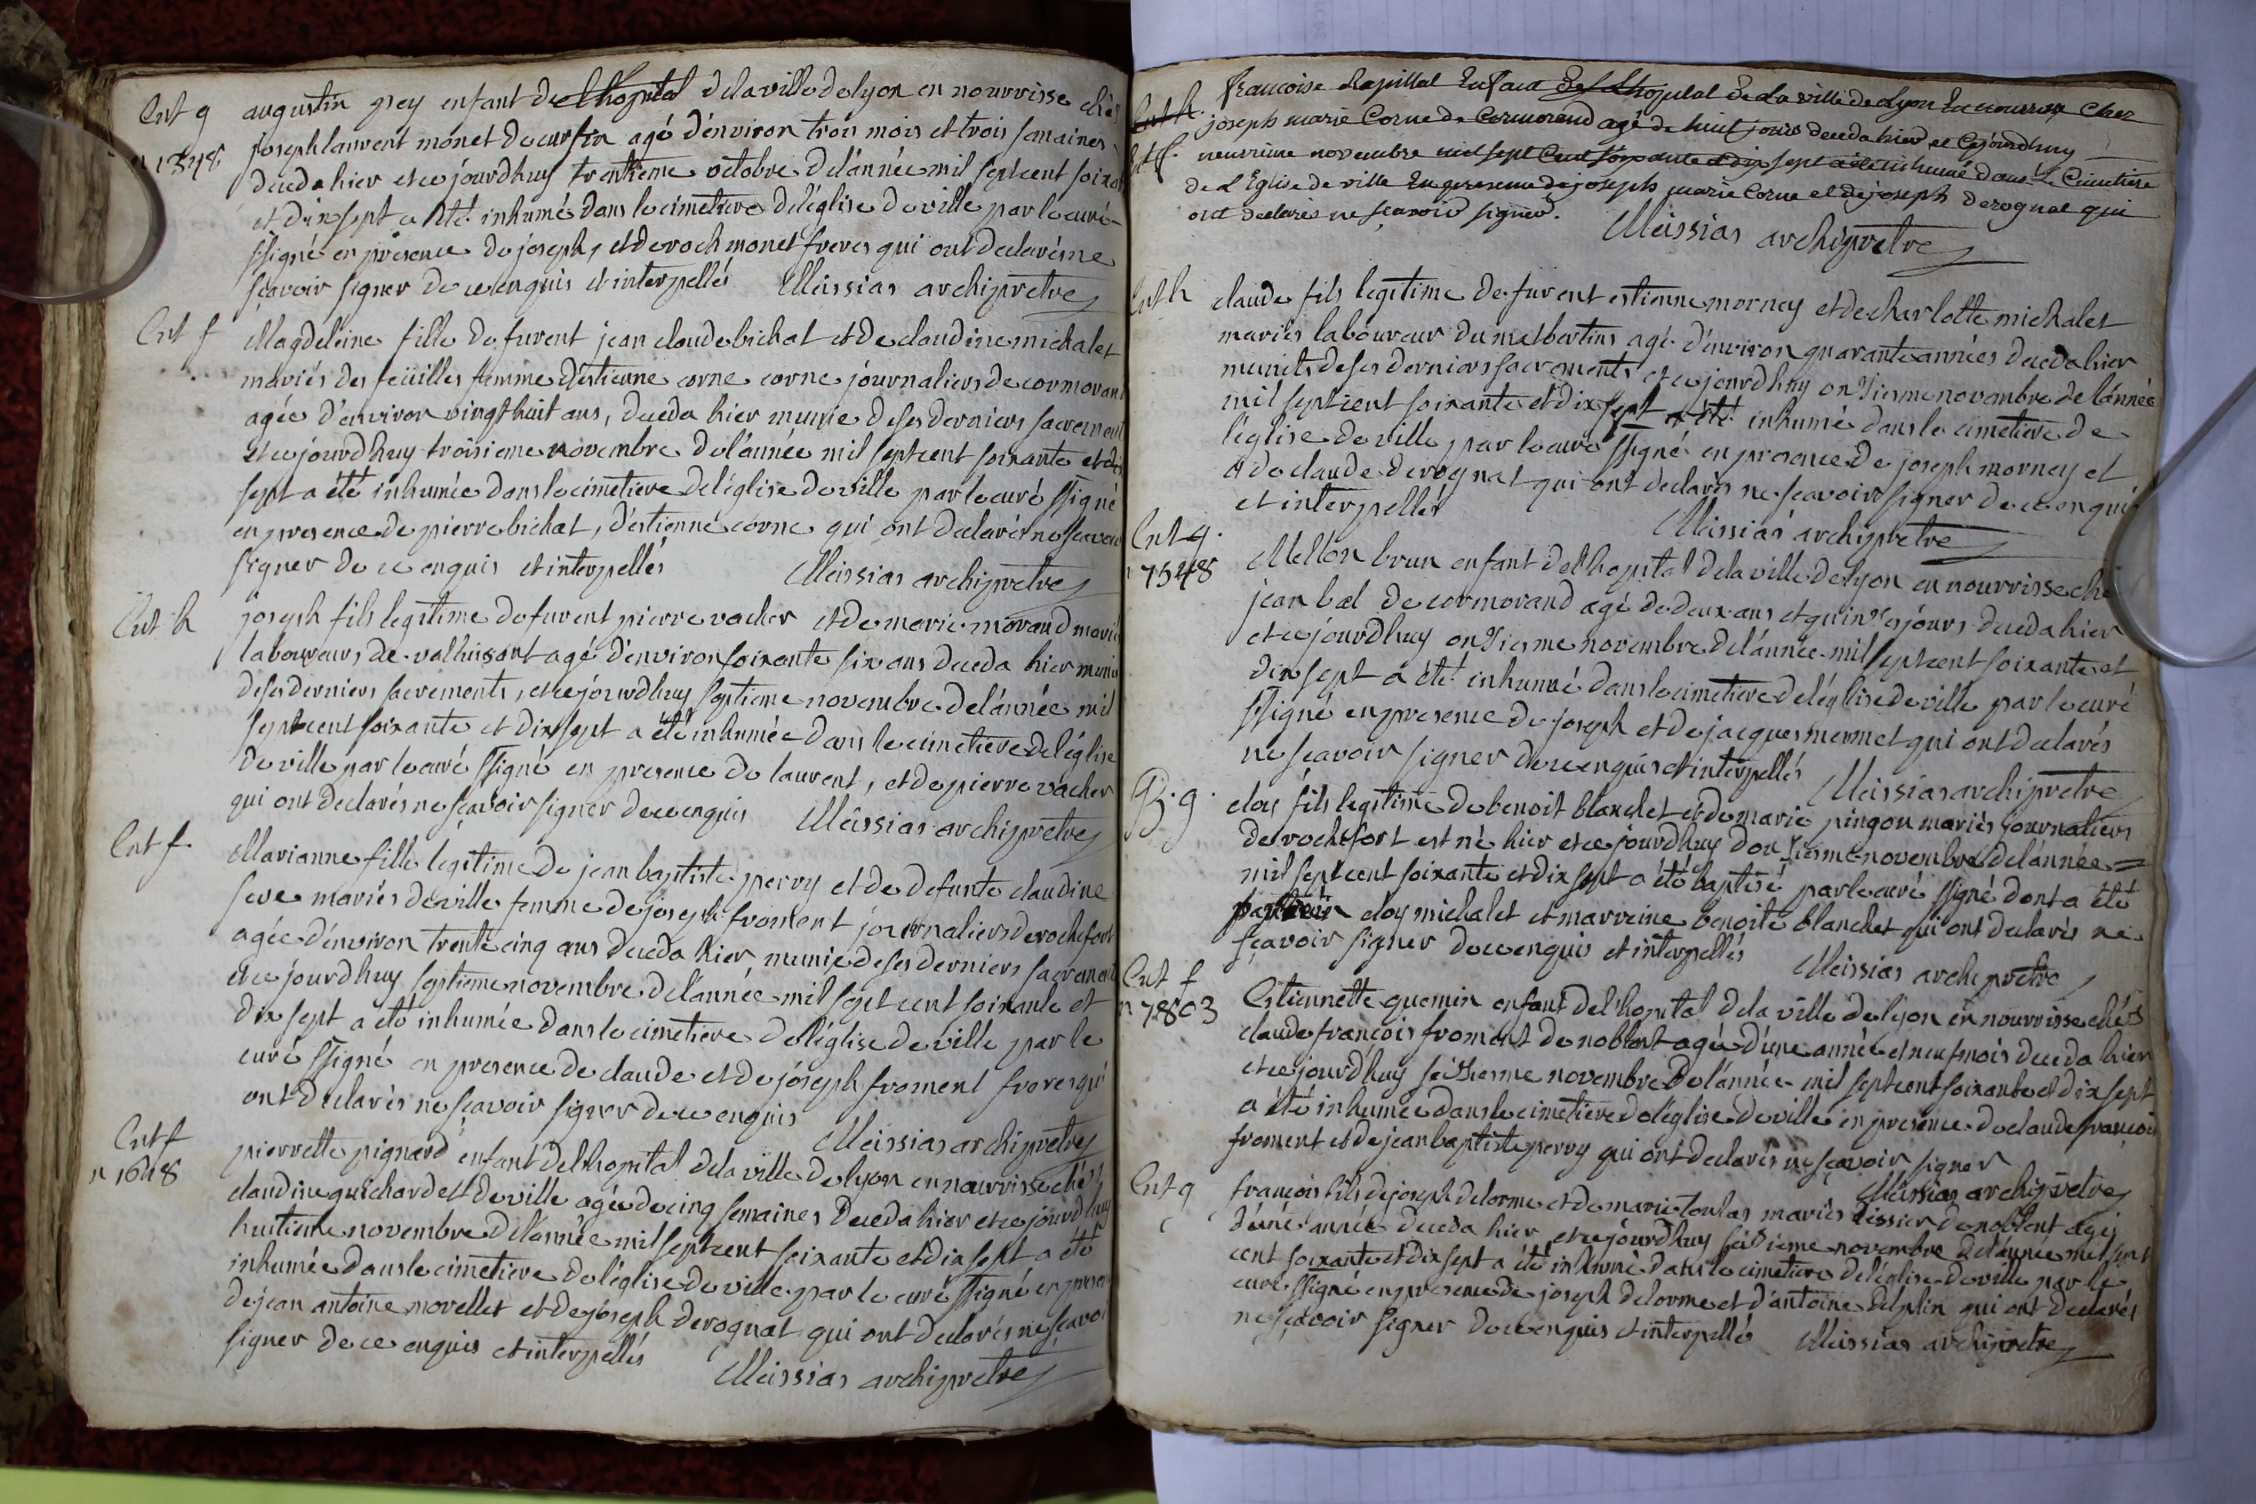 Ent g augustin grey enfant de l'hopital de la ville de lyon en nourrisse chés
n 1348 joseph laurent monet de curtin agé d'environ trois mois et trois semaines
deceda hier et ce jourdhuy trentieme octobre de l'année mil septcent soixan
et dix sept a été inhumé dans le cimetiere de l'église de ville par le curé
ssigné en presence de joseph, et de roch monet freres qui ont declarés ne
scavoir signer de ce enquis et interpellés Meissias archiprêtre
Ent f Magdeleine fille de furent jean claude bichat et de claudine michalet
mariés des feüilles femme d'estienne corne corne journaliers de cormorand
agée d'environ vingt huit ans, deceda hier munie de ses derniers sacrement
et ce jourdhuy troisieme novembre de l'année mil septcent soixante et dix
sept a été inhumée dans le cimetiere de l'église de ville par le curé ssigné
en presence de pierre bichat, d'estienne corne qui ont declarés ne scavoir
signer de ce enquis et interpellés Meissias archiprêtre
Ent h joseph fils legitime de furent pierre vacher et de marie morand mariés
laboureurs de valhuisant agé d'environ soixante six ans deceda hier muni
de ses derniers sacrements, et ce jourdhuy septieme novembre de l'année mil
septcent soixante et dix sept a été inhumée dans le cimetiere de l'église
de ville par le curé ssigné en presence de laurent, et de pierre vacher
qui ont declarés ne scavoir signer de ce enquis Meissias archiprêtre
Ent f Marianne fille legitime de jean baptiste perry et de defunte claudine
seve mariés de ville femme de joseph froment journaliers de rochefort
agée d'environ trente cinq ans deceda hier munie de ses derniers sacrement
et ce jourdhuy septieme novembre de l'année mil sept cent soixante et
dix sept a été inhumée dans le cimetiere de l'église de ville par le
curé ssigné en presence de claude et de joseph froment freres qui
ont declarés ne scavoir signer de ce enquis Meissias archiprêtre
Ent f pierrette pignard enfant de l'hopital de la ville de lyon en nourrisse chés
n 1648 claudine guichardet de ville agée de cinq semaines deceda hier et ce jourdhuy
huitieme novembre de l'année mil septcent soixante et dix sept a été
inhumée dans le cimetiere de l'église de ville par le curé ssigné en presen
de jean antoine novellet et de joseph derognat qui ont declarés ne scavoi
signer de ce enquis et interpellés Meissias archiprêtre
francoise Rapillat Enfant de L'hopital de La ville de Lyon En nourrice Chez
joseph marie Corne de Cormorand agé de huit jours deceda hier et Cejourdhuy
neuvieme novembre mil sept Cent soixante et dix sept a été inhumé dans Le Cimetiere
de L'Eglise de ville En presence de joseph marie Corne et de joseph derognat qui
ont declarés ne scavoir signer.
Meissias archiprêtre
Ent h claude fils legitime de furent estienne mornay et de charlotte michalet
mariés laboureur du mas bertins agé d'environ quarante années deceda hier
munits de ses derniers sacrements et ce jourdhuy onzieme novembre de l'année
mil septcent soixante et dix sept a été inhumé dans le cimetiere de
l'église de ville par le curé ssigné en presence de joseph mornay et
de claude derognat qui ont declarés ne scavoir signer de ce enquis
et interpellés Meissias archiprêtre
Ent g. Mellon brun enfant de l'hopital de la ville de lyon en nourrisse ché
n 7548 jean bal de cormorand agé de deux ans et quinze jours deceda hier
et ce jourdhuy onzieme novembre de l'année mil septcent soixante et
dix sept a été inhumé dans le cimetiere de l'église de ville par le curé
ssigné en presence de joseph et de jacques mermet qui ont declarés
ne scavoir signer de ce enquis et interpellés Meissias archiprêtre
B. g. eloy fils legitime de benoit blanchet et de marie pingou mariés journaliers
de rochefort est né hier et ce jourdhuy douzieme novembre de l'année
mil septcent soixante et dix sept a été baptisé par le curé ssigné dont a été
parrein eloy michalet et marreine benoite blanchet qui ont declarés ne
scavoir signer de ce enquis et interpellés Meissias archiprêtre
Ent f Estiennette guemin enfant de l'hopital de la ville de lyon en nourrisse chés
n 7803 claude françois froment de noblent agée d'une année et neuf mois deceda hier
et ce jourdhuy seizieme novembre de l'année mil septcent soixante et dix sept
a été inhumée dans le cimetiere de l'église de ville en presence de claude francois
froment et de jean baptiste perry qui ont declarés ne scavoir signer
Meissias archiprêtre
Ent g francois fils de joseph delorme et de marie toulas mariés tissier de noblent agé
d'une année deceda hier et ce jourdhuy seizieme novembre de l'année mil sept
cent soixante et dix sept a été inhumé dans le cimetiere de l'église de ville par le
curé ssigné en presence de joseph delorme et d'antoine delplin qui ont declarés
ne scavoir signer de ce enquis et interpellés Meissias archiprêtre